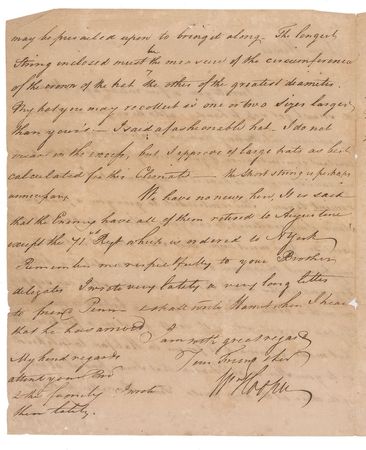 may be prevailed upon to bring it along. The longest
String enclosed must be the measure of the circumference
of the crown of the hat the other of the greatest diameter.
My hat you may recollect is one or two Sizes larger
than yours — I said a fashionable hat. I do not
mean in the excess, but I approve of large hats as best
calculated for this Climate — the short string is perhaps
unnecessary.
We have no news here, It is said
that the Enemy have all of them retired to Augustine
except the 71st Regt which is ordered to NYork
Remember me respectfully to your Brother
delegates I wrote very lately a very long letter
to from Penn shall write when I hear
that he has arrived
I am with great regard
Your Friend &
Wm Hooper
My kind regards
attend your
& the family I wrote
them lately.